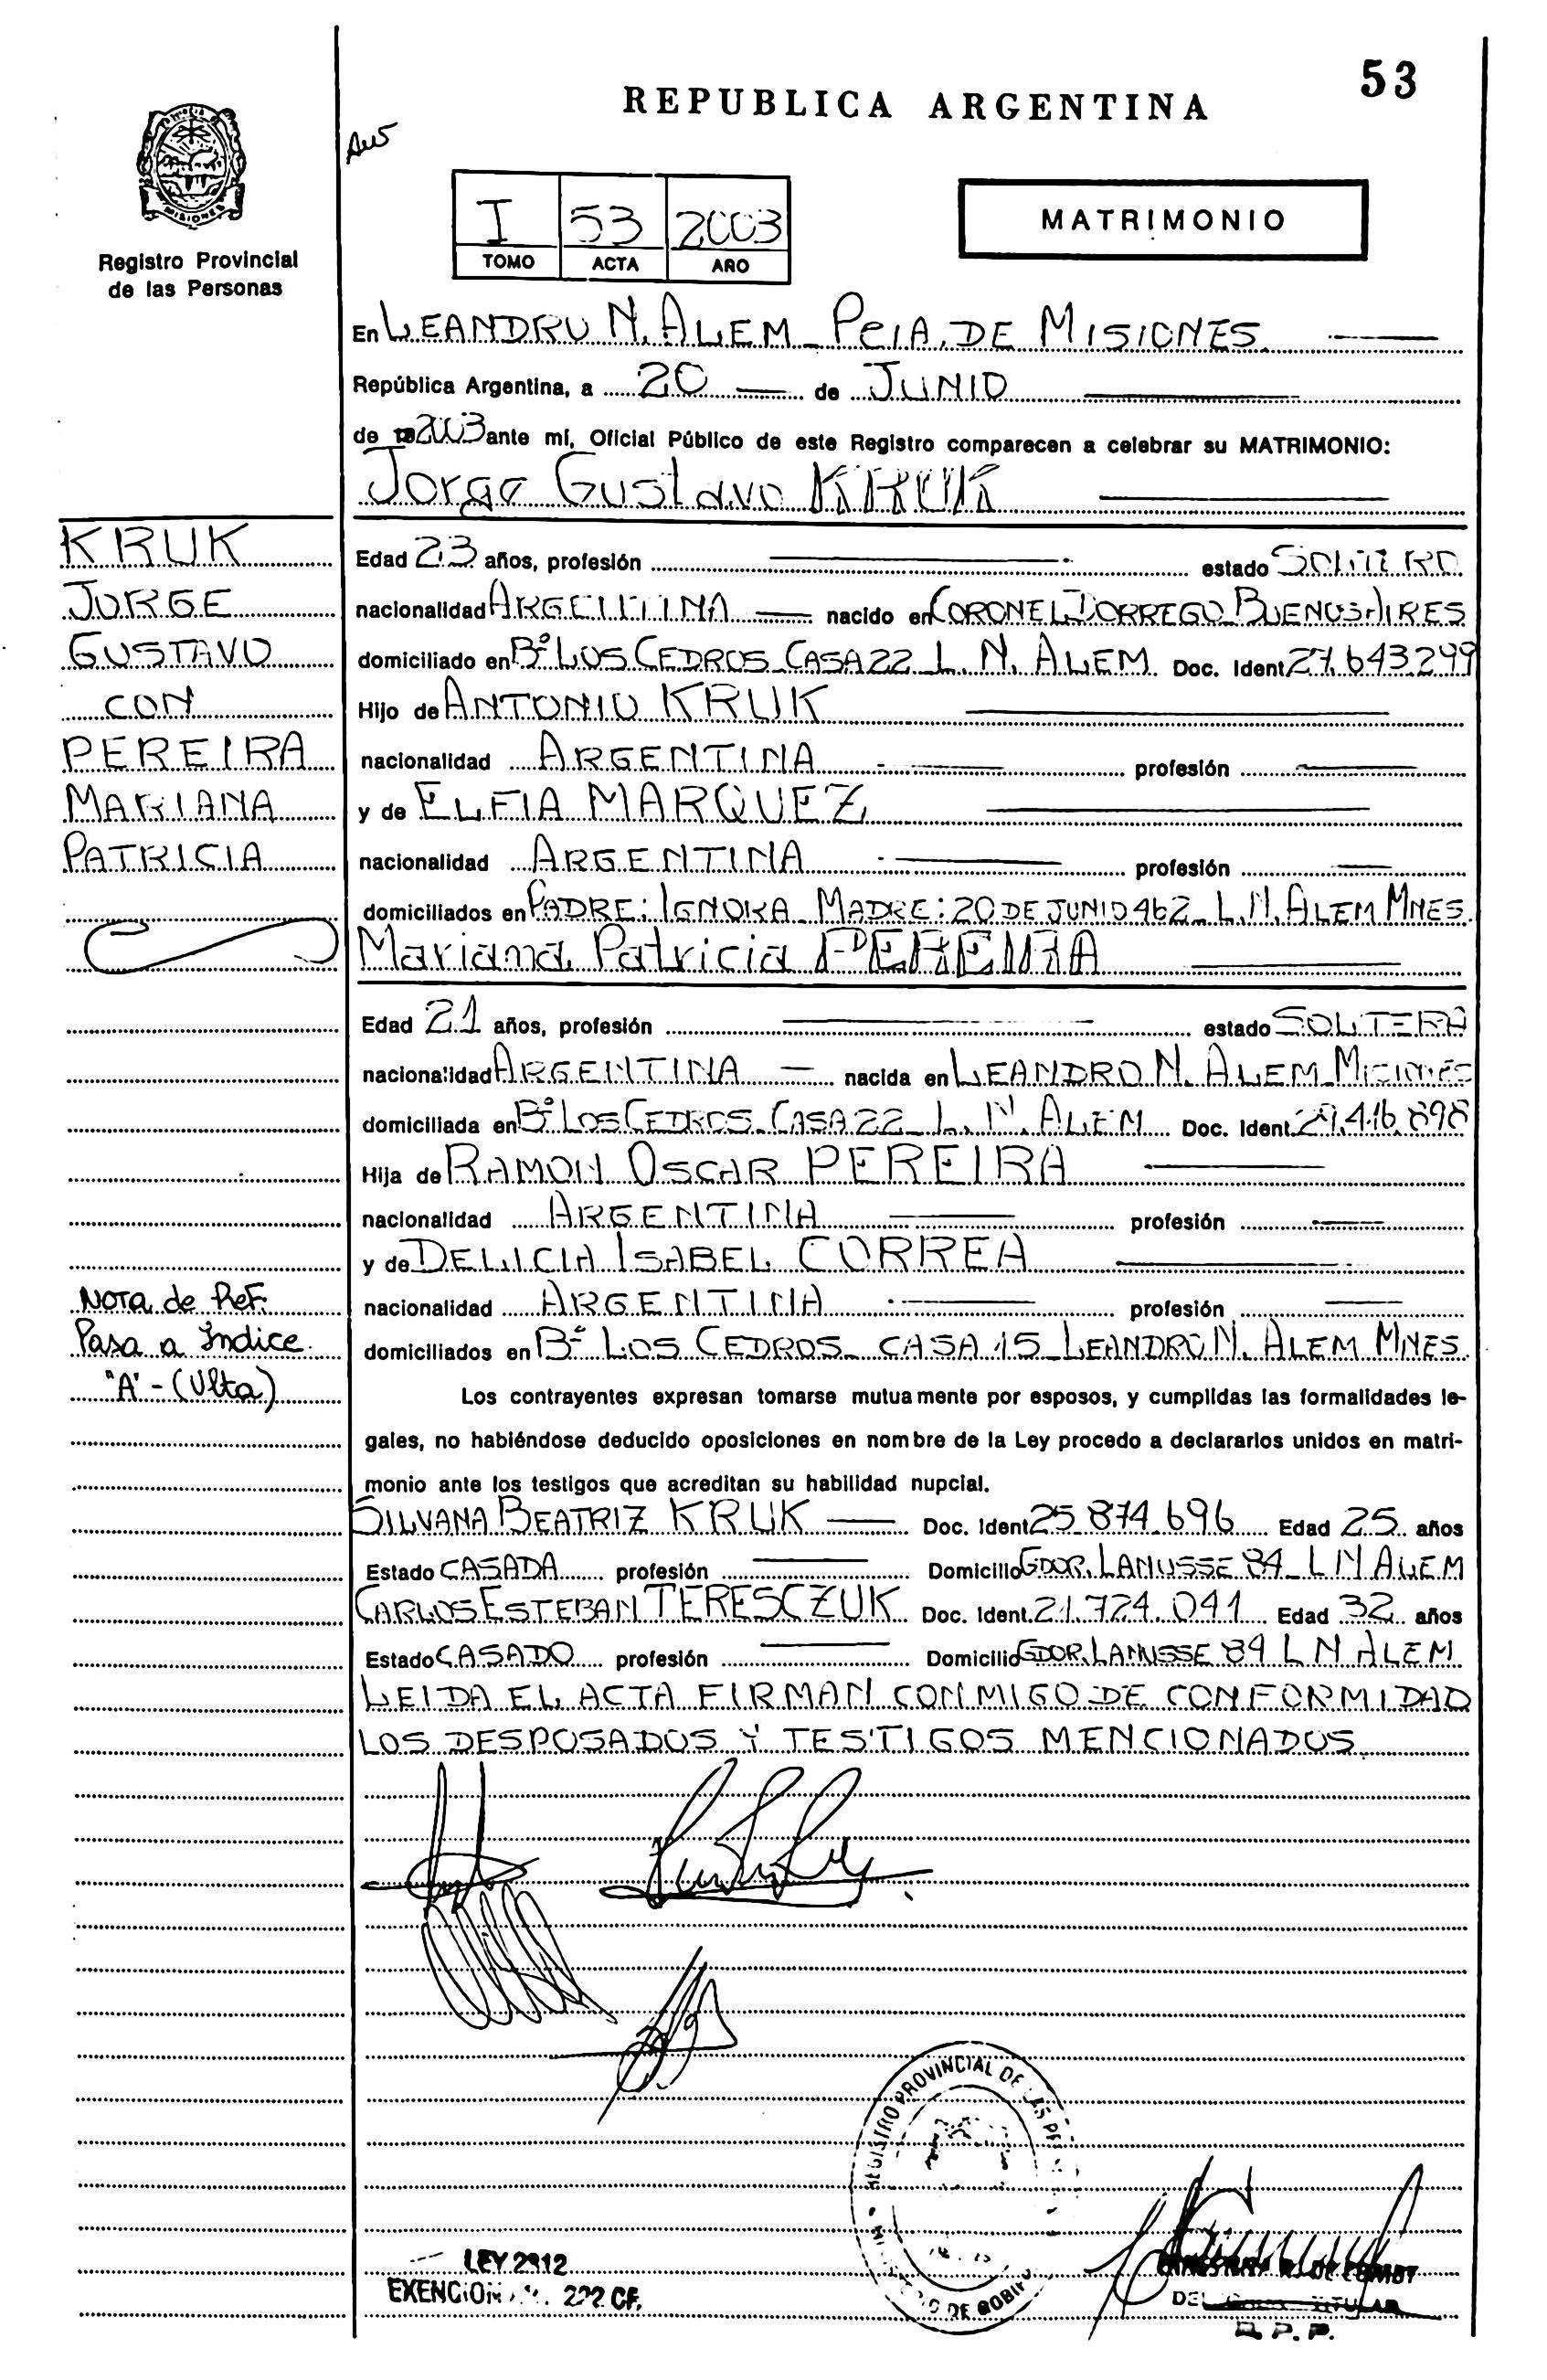 53
REPUBLICA ARGENTINA
MISIONES
Registro Provincial
de las Personas
I 53 2003
TOMO ACTA AÑO
MATRIMONIO
En LEANDRO N. ALEM - PCIA. DE MISIONES
República Argentina, a 20 de JUNIO
de 2003 ante mí, Oficial Público de este Registro comparecen a celebrar su MATRIMONIO:
Jorge Gustavo KRUK
KRUK
JORGE
GUSTAVO
CON
PEREIRA
MARIANA
PATRICIA
Edad 23 años, profesión estado SOLTERO
nacionalidad ARGENTINA nacido en CORONEL DORREGO BUENOS AIRES
domiciliado en Bº LOS CEDROS CASA 22 L. N. ALEM Doc. Ident. 27.643.299
Hijo de ANTONIO KRUK
nacionalidad ARGENTINA profesión
y de ELFIA MARQUEZ
nacionalidad ARGENTINA profesión
domiciliados en PADRE: IGNORA - MADRE: 20 DE JUNIO 462 - L.N. ALEM MNES.
Mariana Patricia PEREIRA
Edad 21 años, profesión estado SOLTERA
nacionalidad ARGENTINA nacida en LEANDRO N. ALEM MISIONES
domiciliada en Bº LOS CEDROS - CASA 22 - L. N. ALEM Doc. Ident. 29.416.898
Hija de RAMON OSCAR PEREIRA
nacionalidad ARGENTINA profesión
y de DELICIA ISABEL CORREA
nacionalidad ARGENTINA profesión
domiciliados en Bº LOS CEDROS - CASA 15 - LEANDRO N. ALEM MNES.
NOTA de Ref.
Pasa a Indice
"A" - (Vlta)
Los contrayentes expresan tomarse mutuamente por esposos, y cumplidas las formalidades le-
gales, no habiéndose deducido oposiciones en nombre de la Ley procedo a declararlos unidos en matri-
monio ante los testigos que acreditan su habilidad nupcial.
SILVANA BEATRIZ KRUK Doc. Ident 25.874.696 Edad 25 años
Estado CASADA profesión Domicilio GDOR. LANUSSE 84 - L N ALEM
CARLOS ESTEBAN TERESCZUK Doc. Ident. 21.724.041 Edad 32 años
Estado CASADO profesión Domicilio GDOR. LANUSSE 89 L N ALEM
LEIDA EL ACTA FIRMAN CONMIGO DE CONFORMIDAD
LOS DESPOSADOS Y TESTIGOS MENCIONADOS
REGISTRO PROVINCIAL DE LAS
LEY 2912
EXENCION 222 CF.
TITULAR
R. P. P.